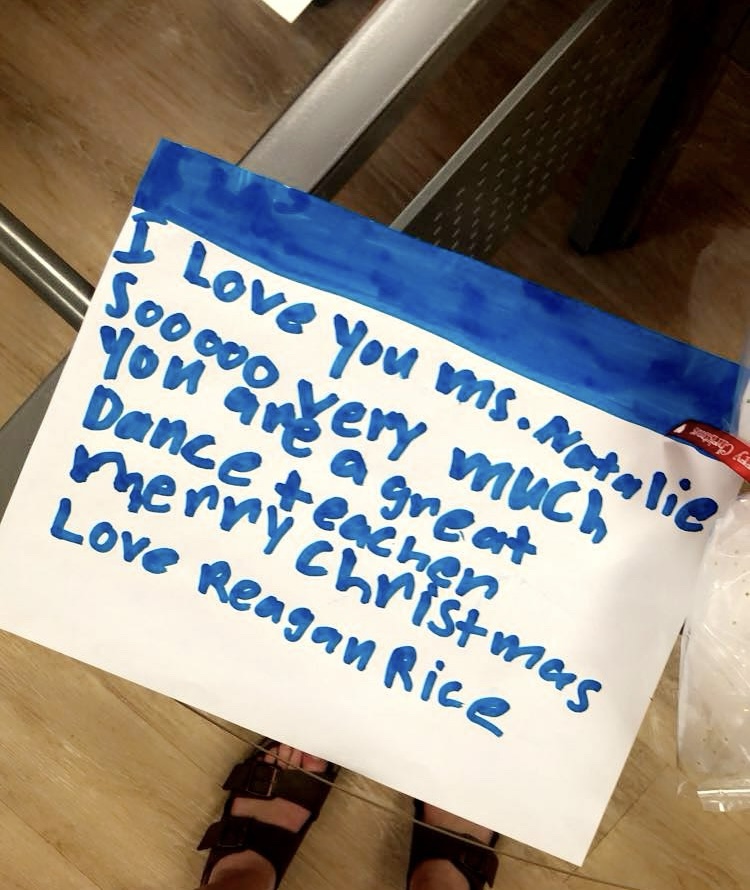 I Love you ms. Natalie
Sooooo very much
you are a great
Dance teacher
merry Christmas
Love Reagan Rice
Merry Christmas